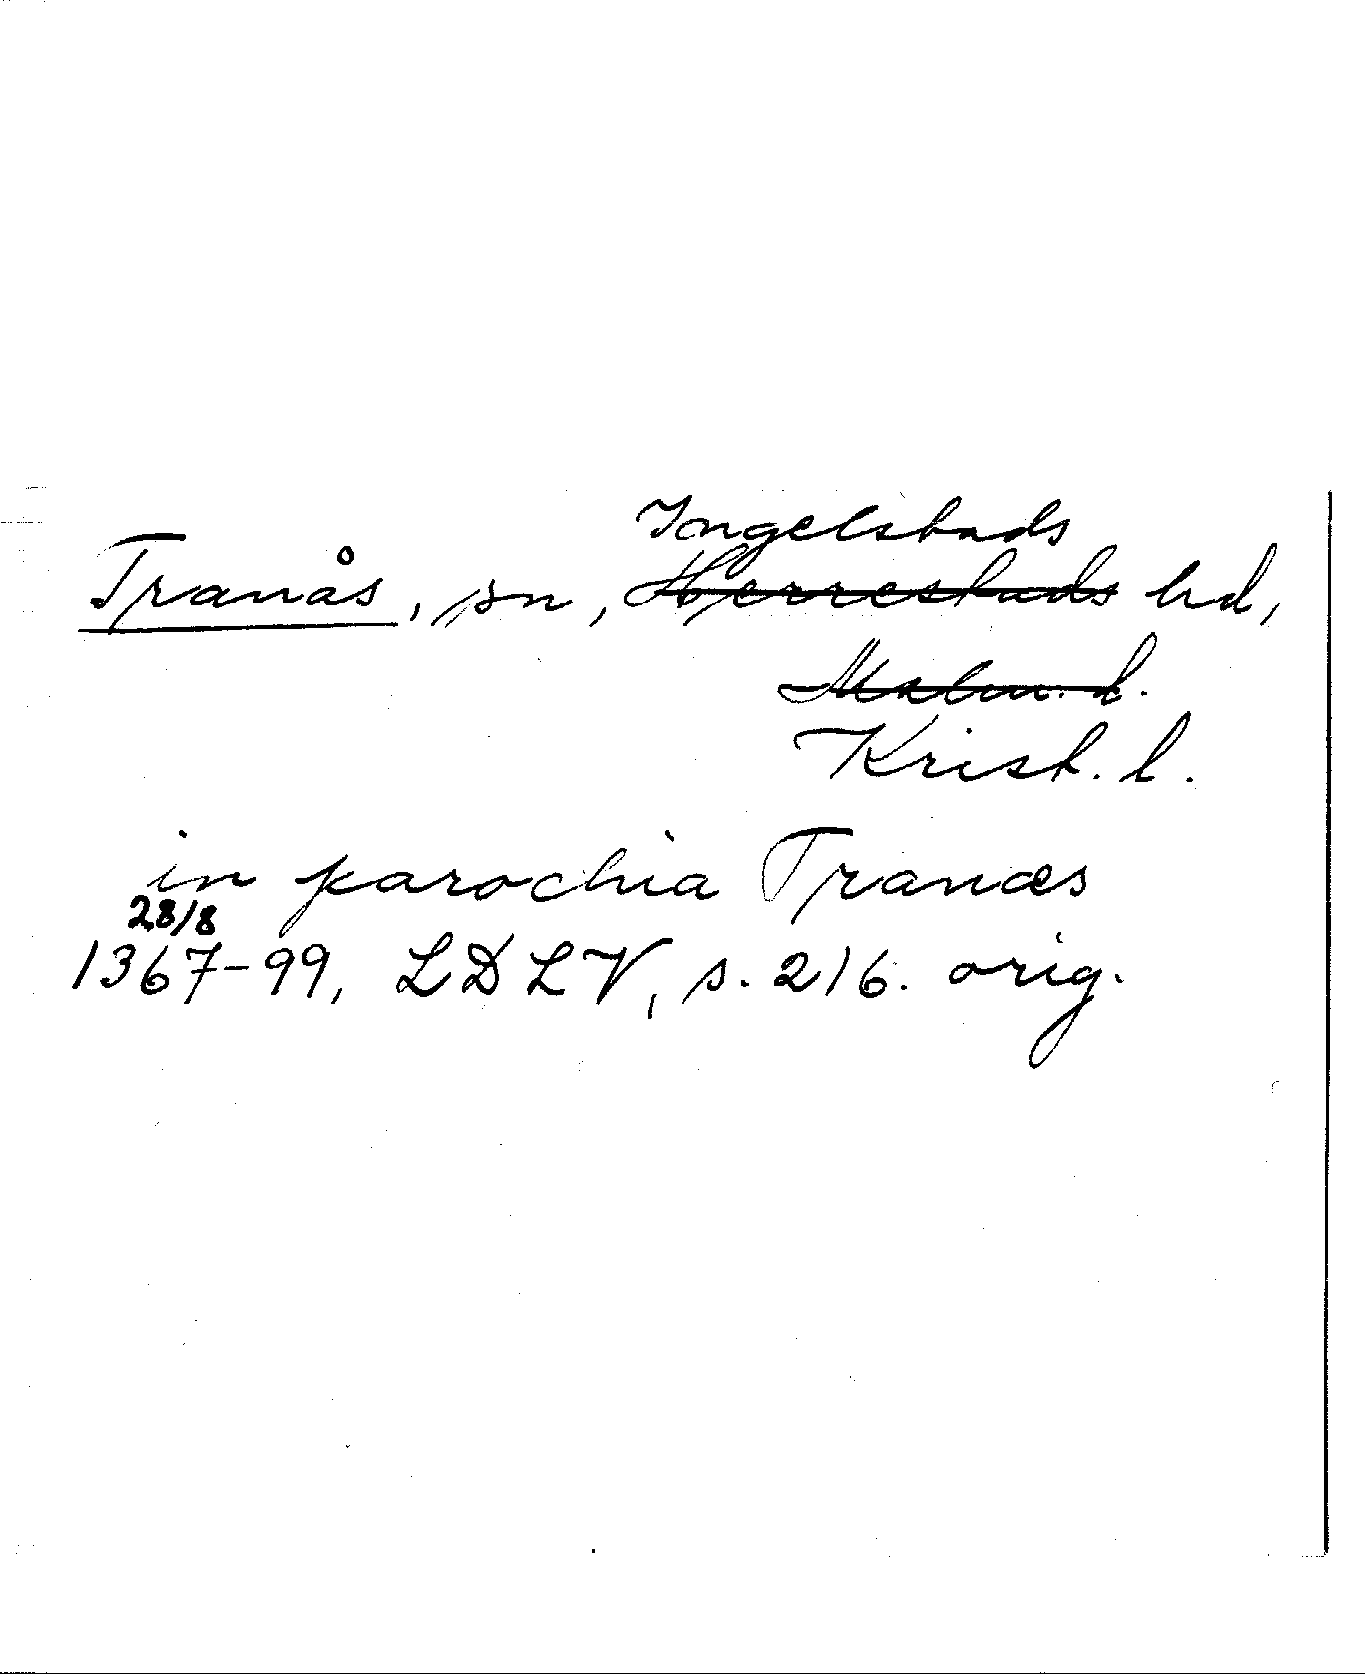 Ingelstads
Tranås, sn, Herrestads hd,
Malm. l.
Krist. l.
in parochia Tranæs
28/8
1367-99, LDLV, s. 216. orig.